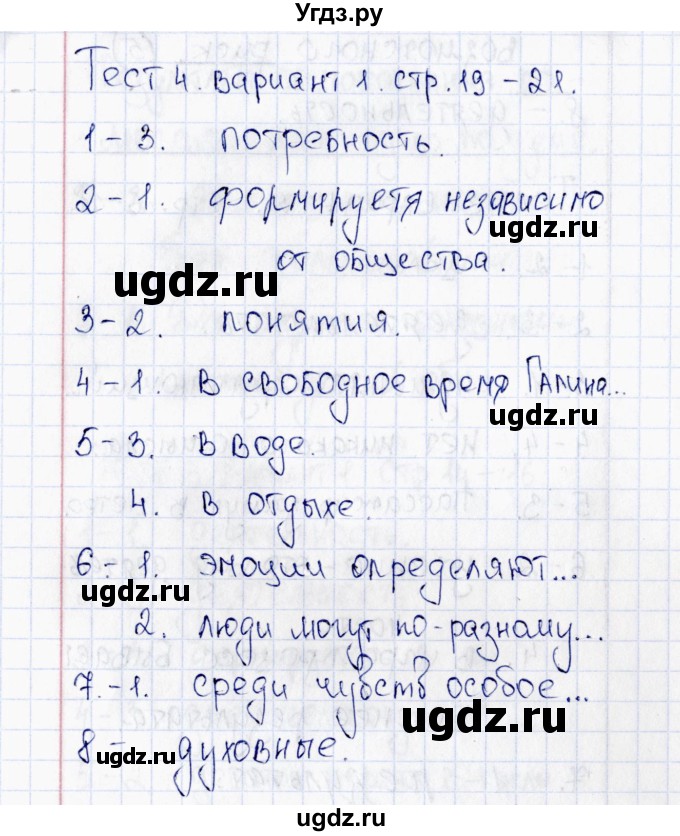 Угдз.ру
Тест 4. вариант 1. стр. 19 – 21.
1 – 3. потребность.
2 – 1. формируетя независимо
ugdz.ru
от общества.
ugdz.ru
3 – 2. понятия.
4 – 1. В свободное время Галина...
ugdz.ru
5 – 3. в воде.
4. в отдыхе.
6 – 1. эмоции определяют...
ugdz.ru
2. люди могут по-разному...
7. – 1. среди чувств особое...
ugdz.ru
8 – духовные.
ugdz.ru
ugdz.ru